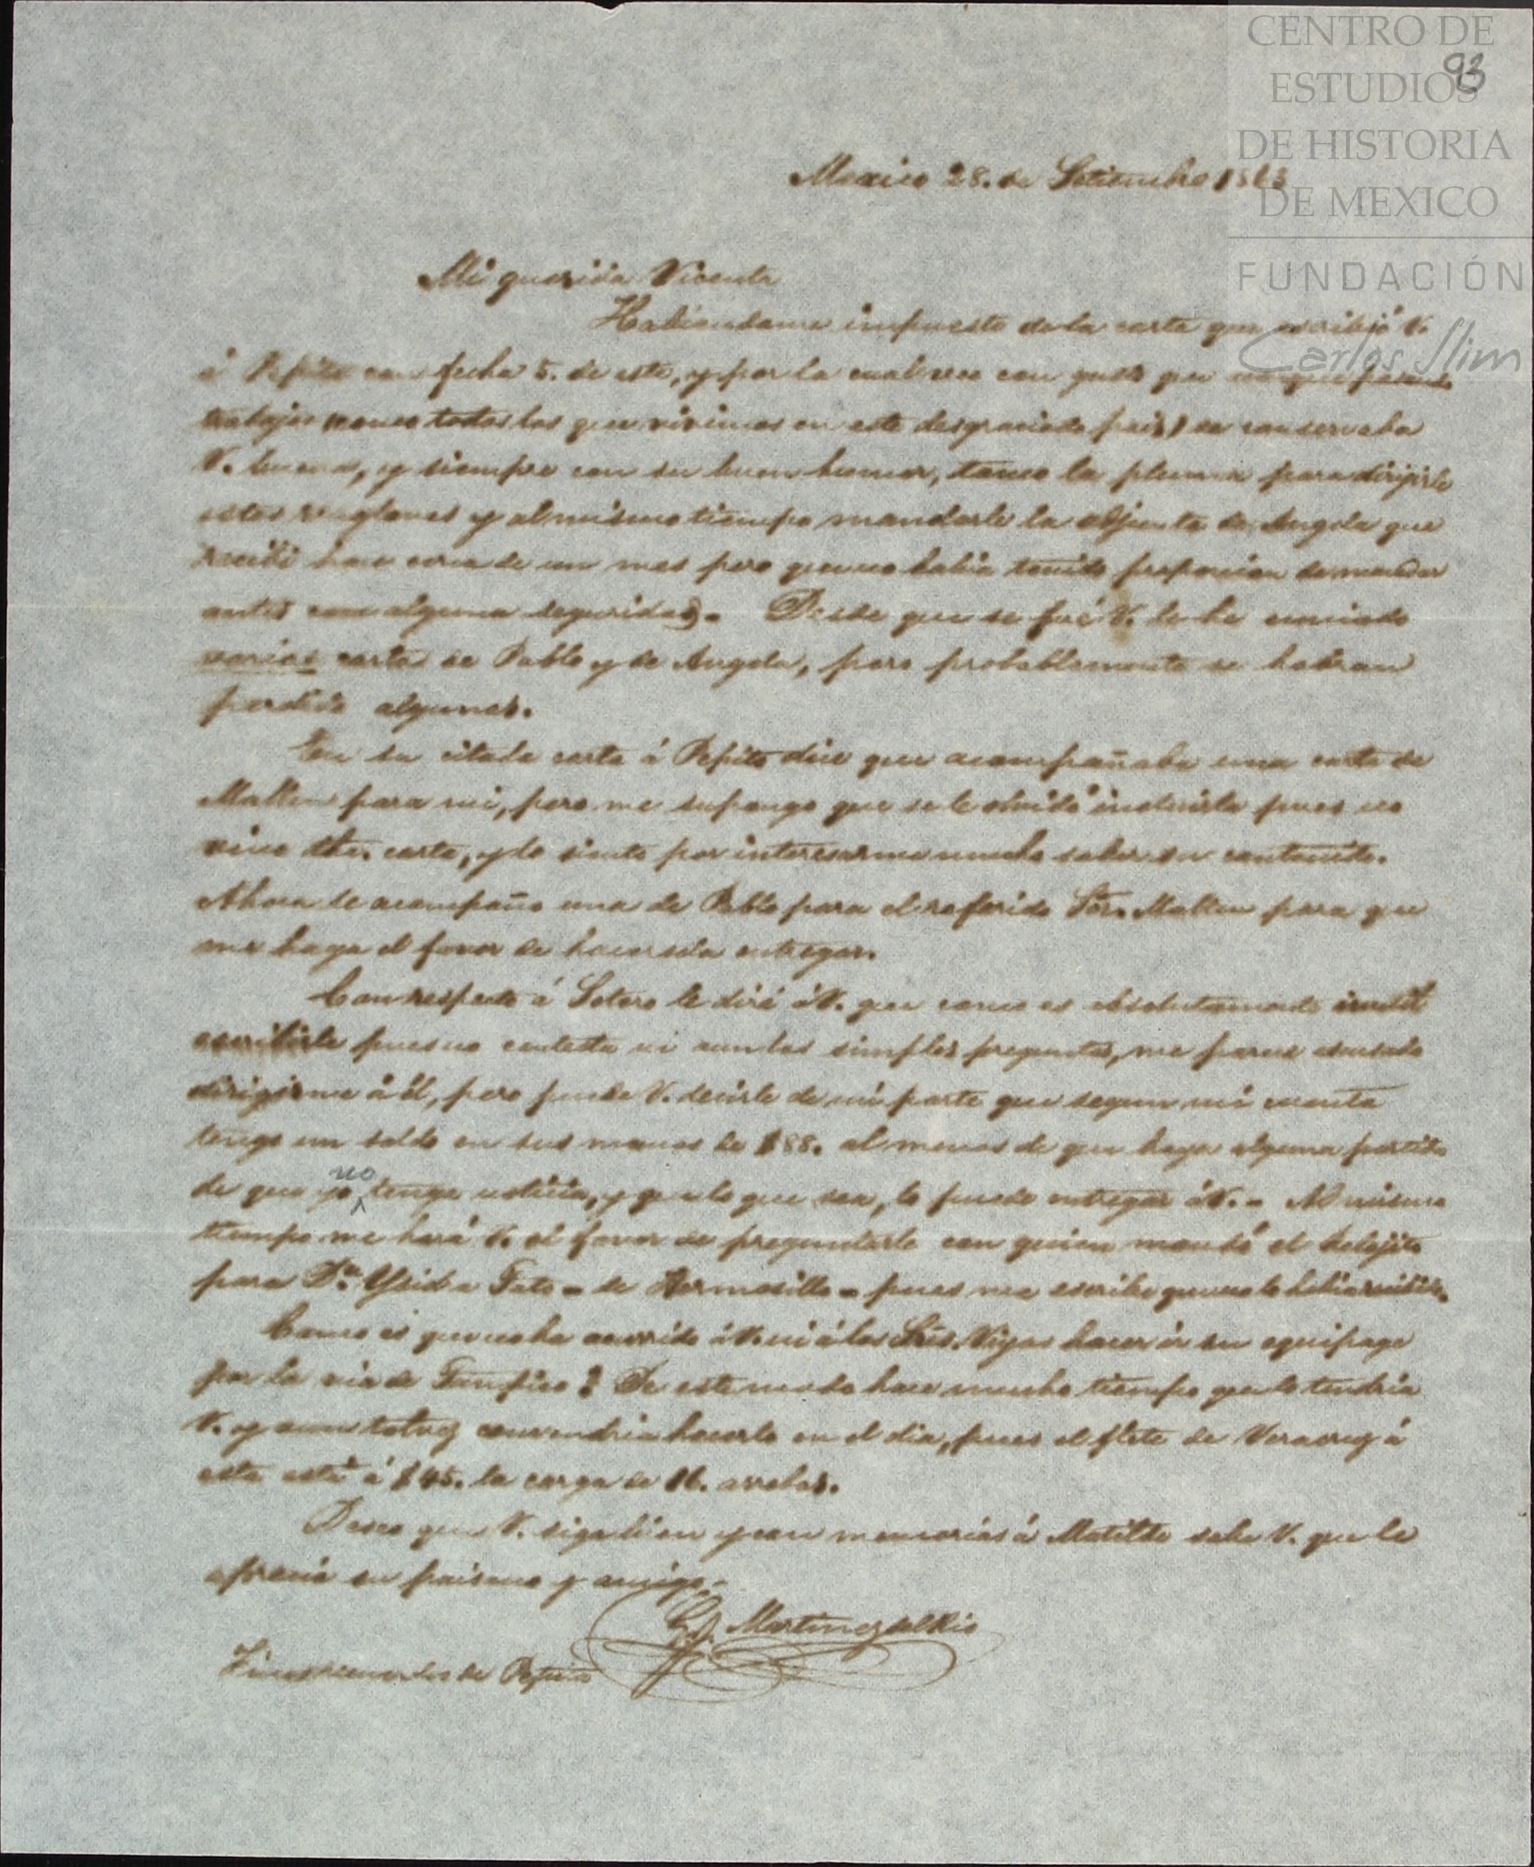 CENTRO DE
ESTUDIOS
DE HISTORIA
DE MEXICO
FUNDACIÓN
Carlos Slim
93
Mexico 28. de Setiembre 1863
Mi querida Vicenta
Habiendome impuesto de la carta que escribió V.
á Pepita con fecha 5. de este, y por la cual veo con gusto que
trabajos (como todos los que vivimos en este desgraciado pais) se conservaba
V. buena, y siempre con su buen humor, tomo la pluma para dirigirle
estos renglones y al mismo tiempo mandarle la adjunta de Angela que
recibí hace cerca de un mes pero que no habia tenido proporcion de mandar
antes con alguna seguridad. Desde que se fué V. le he enviado
varias cartas de Pablo y de Angela, pero probablemente se habran
perdido algunas.
En su citada carta á Pepita dice que acompañaba una carta de
para mi, pero me supongo que se le olvidó incluirla pues no
vino dha. carta, y lo siento por interesarme mucho saber su contenido.
Ahora le acompaño una de Pablo para el referido Sor. para que
me haga el favor de hacersela entregar.
Con respecto á Sotero le diré á V. que como es absolutamente inutil
escribirle pues no contesta ni aun las simples preguntas, me parece escusado
dirigirme á él, pero puede V. decirle de mi parte que segun mi cuenta
tengo un saldo en sus manos de $88. al menos de que haya alguna partida
de que yo no tenga noticia, y que lo que sea, lo puede entregar á V. - Al mismo
tiempo me hará V. el favor de preguntarle con quien mandó el relojito
para Da. de Hermosillo - pues me escribe que no lo habia recibido.
Como es que no ha ocurrido á V. ni á los Sres. Vigas hacer ir su equipage
por la via de Tampico? De este modo hace mucho tiempo que lo tendria
V. y aun talvez convendria hacerlo en el dia, pues el flete de Veracruz á
esta está á $45. la carga de 16. arrobas.
Deseo que V. siga bien y con memorias á Matilde sabe V. que la
aprecia su paisano y amigo,-
G. Martinez del Rio
Finas memorias de Pepita